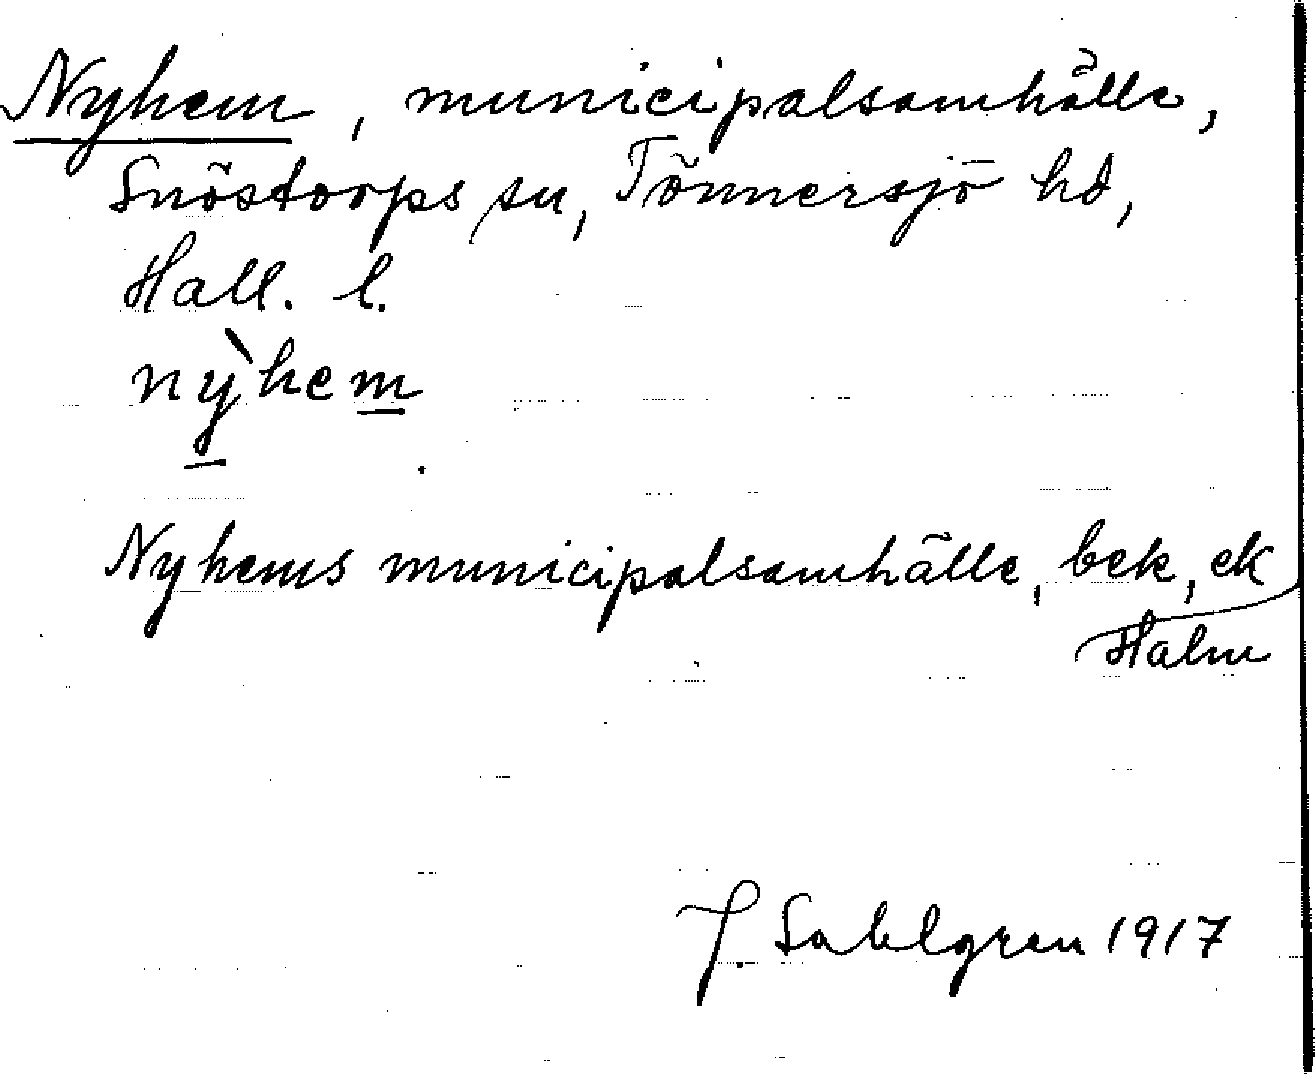 Nyhem, municipalsamhälle,
Snöstorps sn, Tönnersjö hd,
Hall. l.
nỳhem
Nyhems municipalsamhälle, bek, ek
Halm
J. Sahlgren 1917